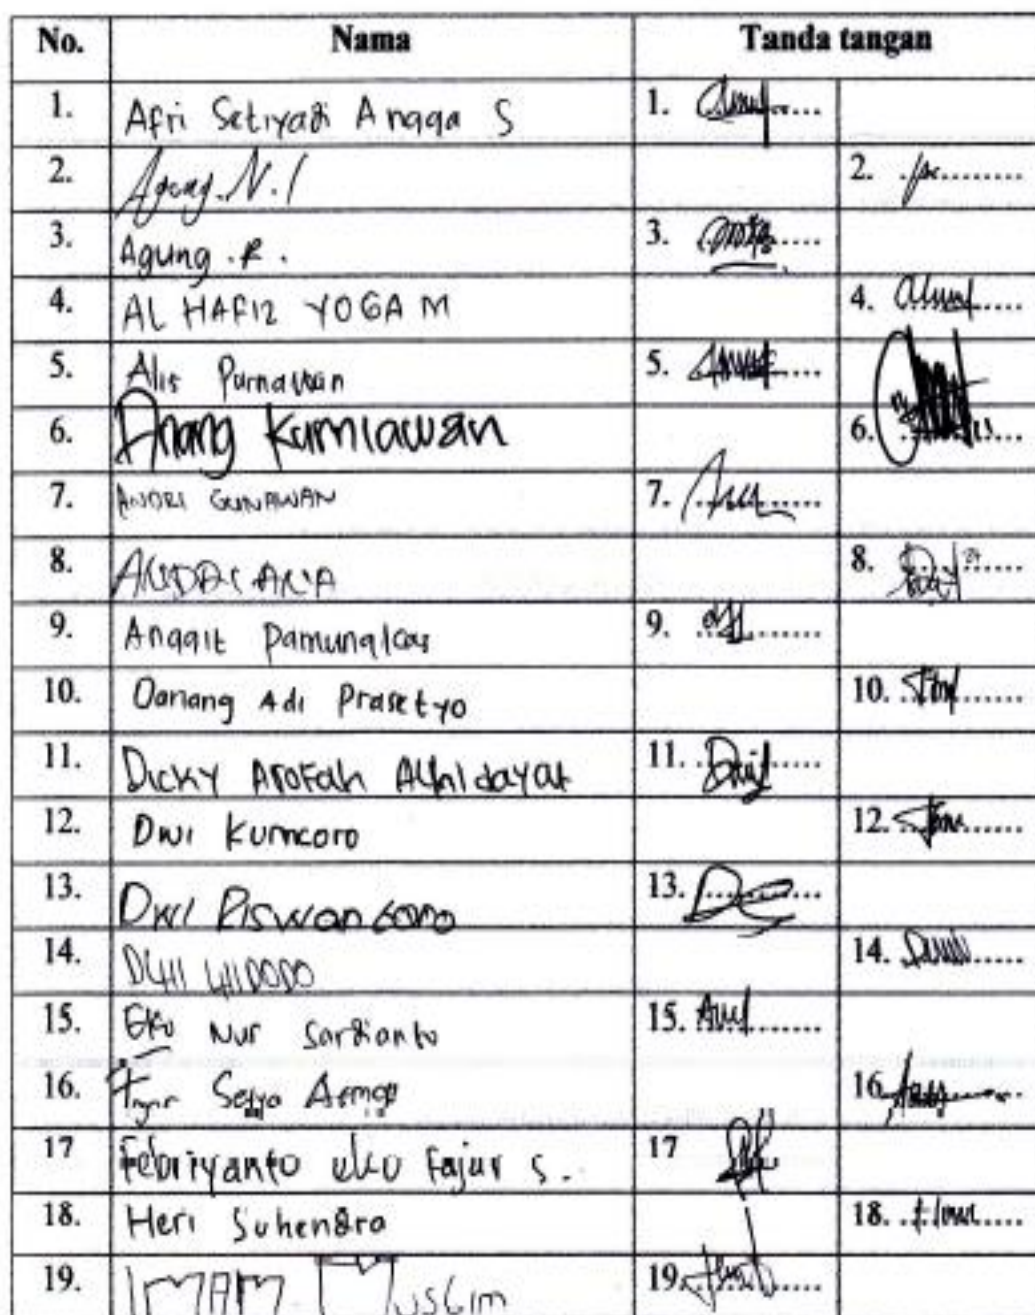 No. Nama Tanda tangan
1. Afri Setiyadi Angga S 1.
2. Agung. N. I 2.
3. Agung . R . 3.
4. AL HAFIZ YOGA M 4.
5. Alis Purnawan 5.
6. Anang Kurniawan 6.
7. ANDRI GUNAWAN 7.
8. 8.
9. Anggit Pamungkas 9.
10. Danang Adi Prasetyo 10.
11. Dicky Arofah Alhidayat 11.
12. Dwi Kuncoro 12.
13. Dwi Riswantono 13.
14. DWI WIDODO 14.
15. Eko Nur Sardianto 15.
16. Setya 16.
17 Febriyanto eko Fajar S. 17
18. Heri Suhendra 18.
19. IMAM Muslim 19.